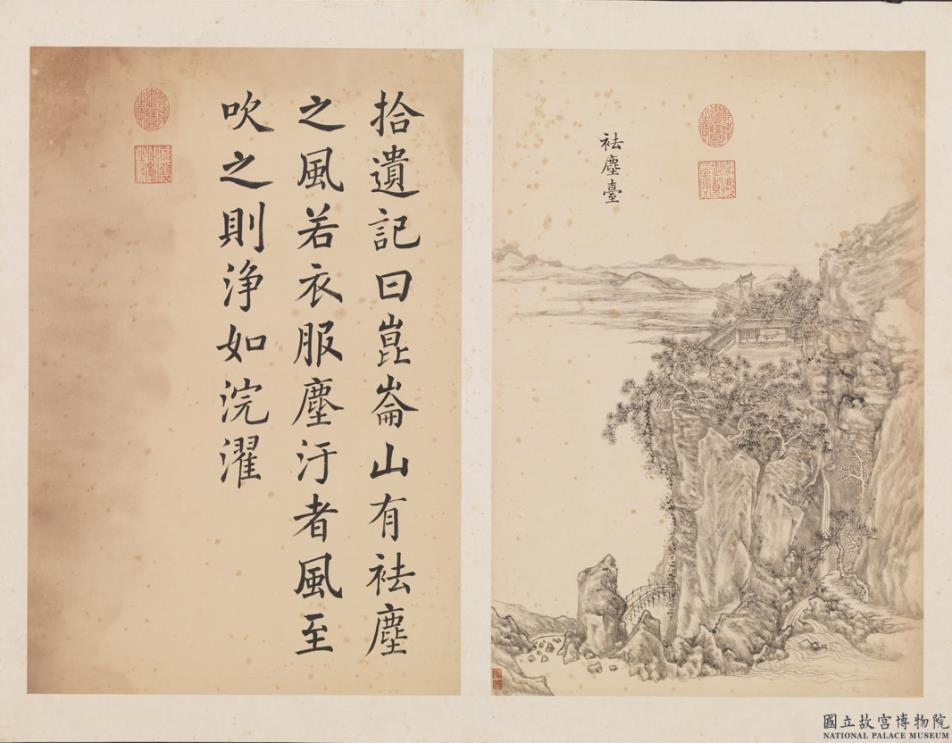 祛塵臺
拾遺記曰崑崙山有祛塵
之風若衣服塵汙者風至
吹之則浄如浣濯
國立故宮博物院
NATIONAL PALACE MUSEUM